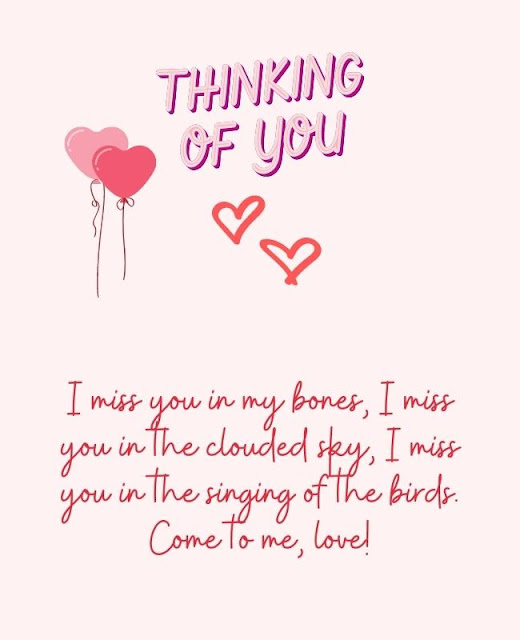 THINKING
OF YOU
I miss you in my bones, I miss
you in the clouded sky, I miss
you in the singing of the birds.
Come to me, love!